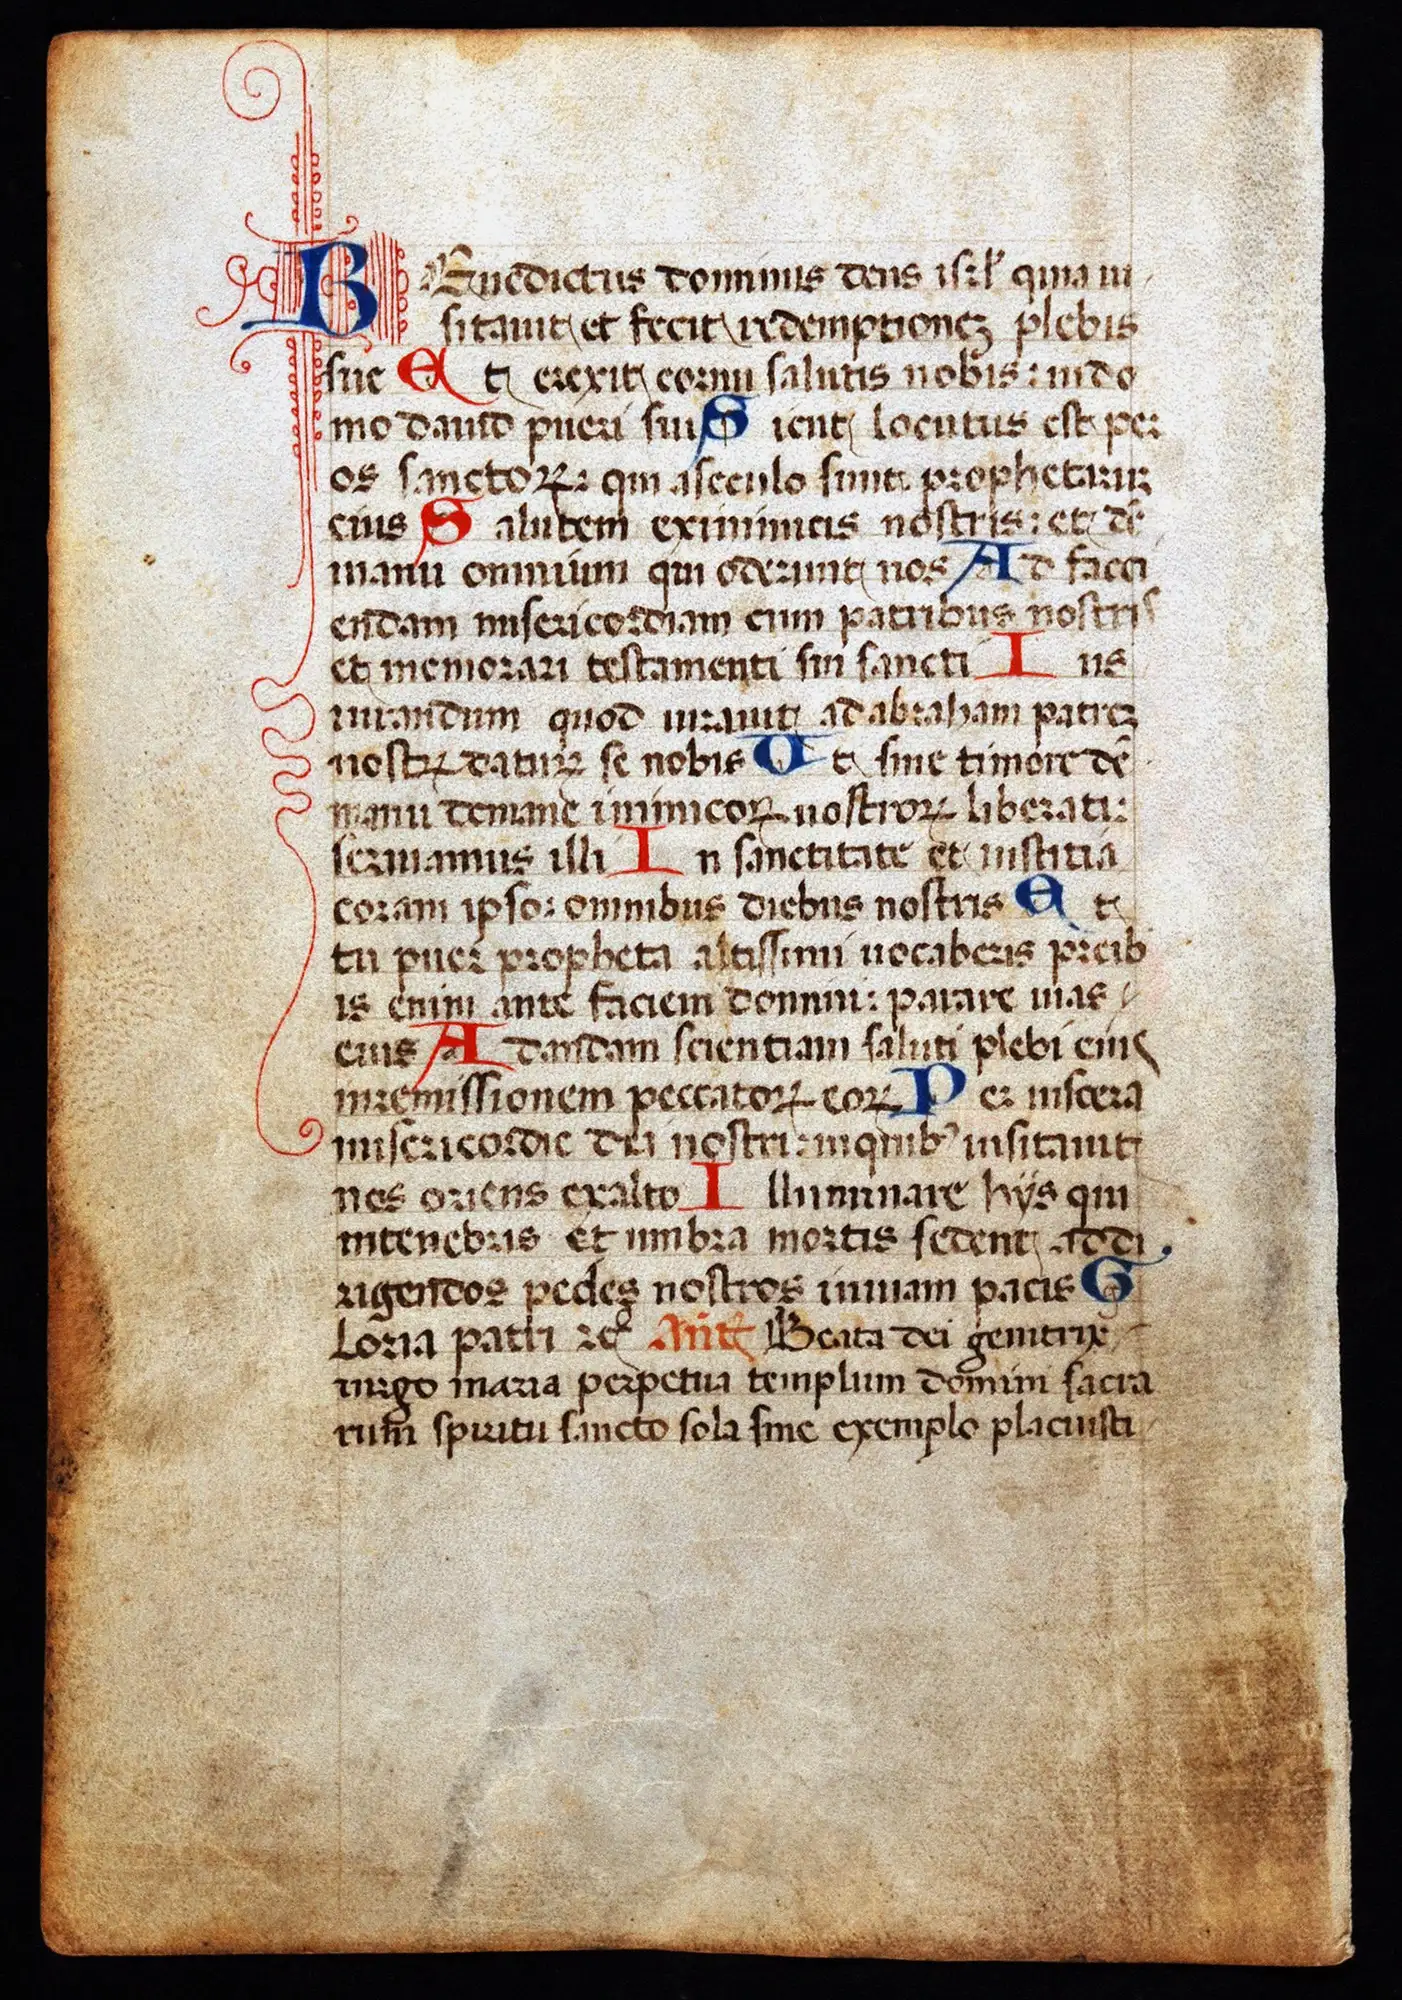 BEnedictus dominus deus isrl' quia ui
sitauit et fecit redemptionez plebis
sue Et erexit cornu salutis nobis : indo
mo dauid pueri sui Sicut locutus est per
os sanctoꝝ : qui aseculo sunt prophetarum
eius Salutem exinimicis nostris : et de
manu omnium qui oderunt nos Ad faci
endam misericordiam cum patribus nostris
et memorari testamenti sui sancti Ius
iurandum quod iurauit ad abraham patrez
nostꝝ daturꝝ se nobis Ut sine timore de
manu demane inimicoꝝ nostroꝝ liberati :
seruiamus illi In sanctitate et iusticia
coram ipso : omnibus diebus nostris Et
tu puer propheta altissimi uocaberis preib
is enim ante faciem domini : parare uias
eius Ad dandam scientiam saluti plebi eius
inremissionem peccatoꝝ eoꝝ Per uiscera
misericordie dei nostri : inquib' uisitauit
nos oriens exalto Illuminare hys qui
intenebris et umbra mortis sedent addi
rigendos pedes nostros inuiam pacis G
loria patri ⁊c̃ Añt Beata dei genitrix
uirgo maria perpetua templum domini sacra
rum spiritu sancto sola sine exemplo placuisti